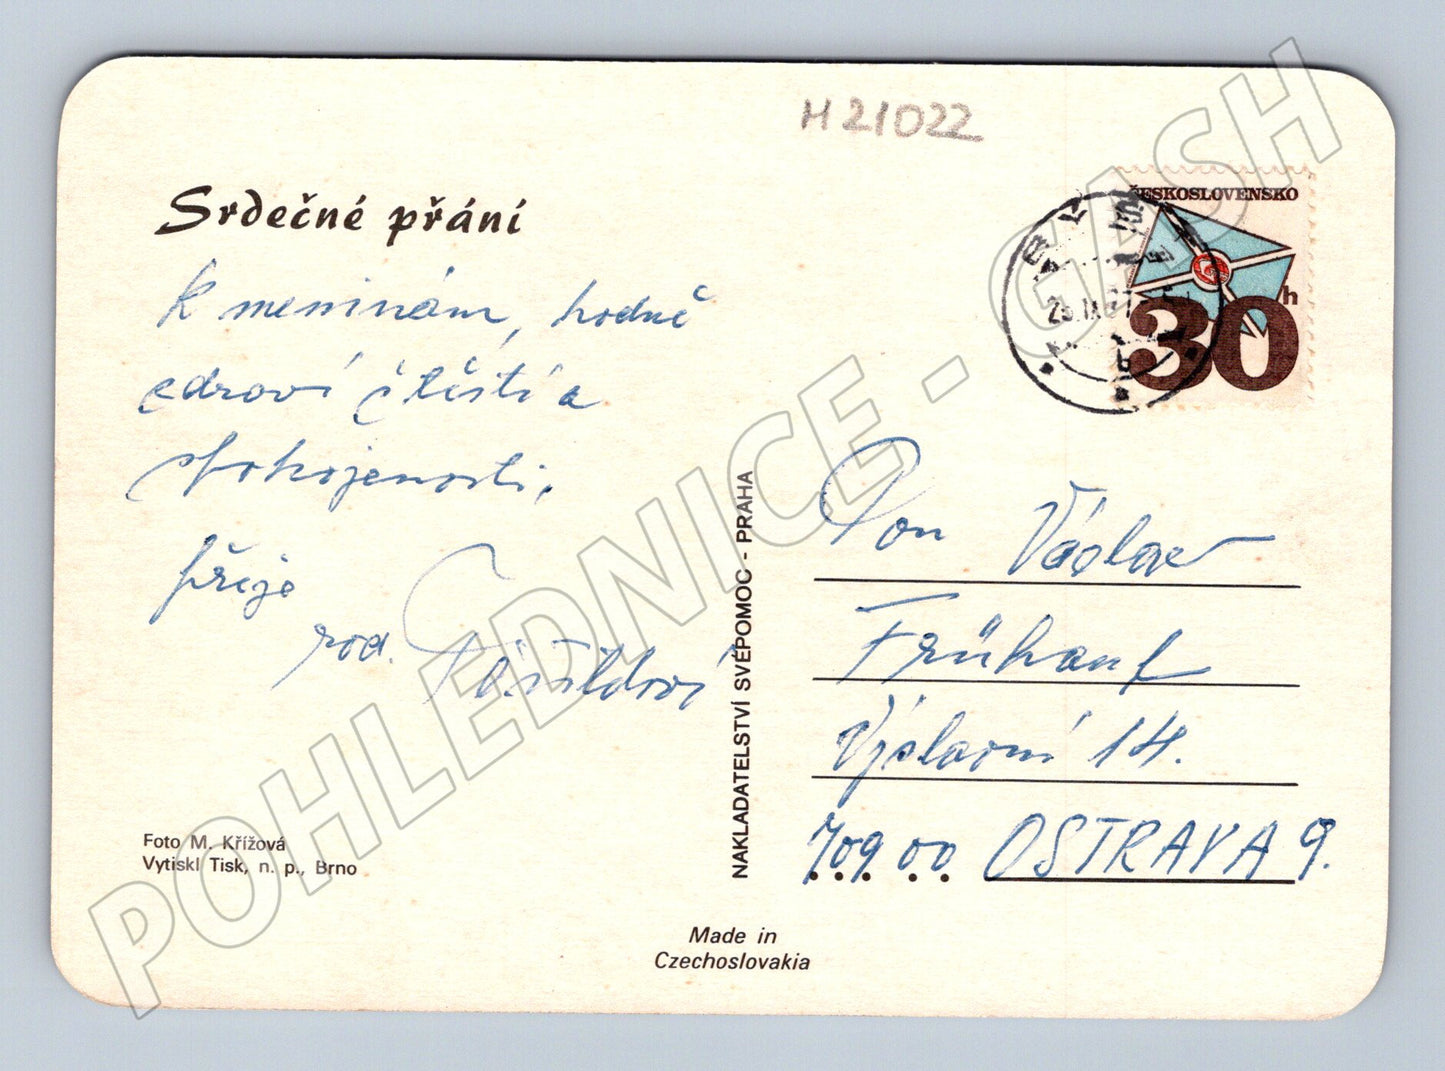 H 21022
ČESKOSLOVENSKO
30 h
Srdečné přání
k meninám, hodně
zdraví štěstí a
spokojenosti,
přeje
rod.
Pan Václav
Frühauf
Výslavní 14.
709 00 OSTRAVA 9.
NAKLADATELSTVÍ SVÉPOMOC - PRAHA
Foto M. Křížová
Vytiskl Tisk, n. p., Brno
Made in
Czechoslovakia
POHLEDNICE - GASH